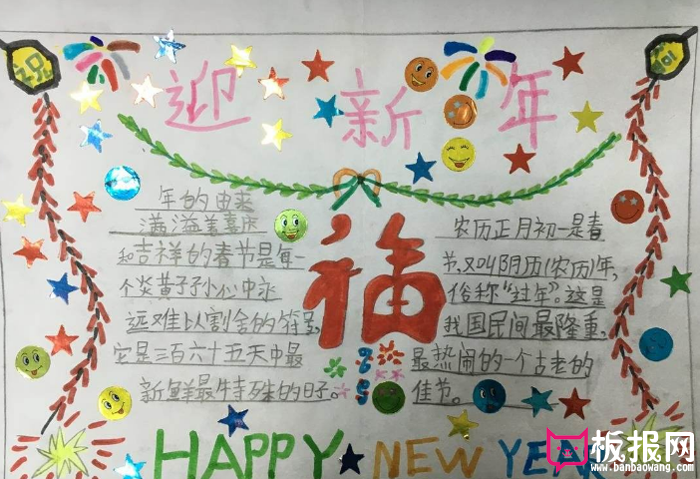 迎新年
年的由来
满溢美喜庆
和吉祥的春节是每一
个炎黄子孙心中永
远难以割舍的符号,
它是三百六十五天中最
新鲜最特殊的日子。
福
农历正月初一是春
节,又叫阴历(农历)年,
俗称“过年”。这是
我国民间最隆重,
最热闹的一个古老的
佳节。
HAPPY NEW YEAR
板报网
www.banbaowang.com